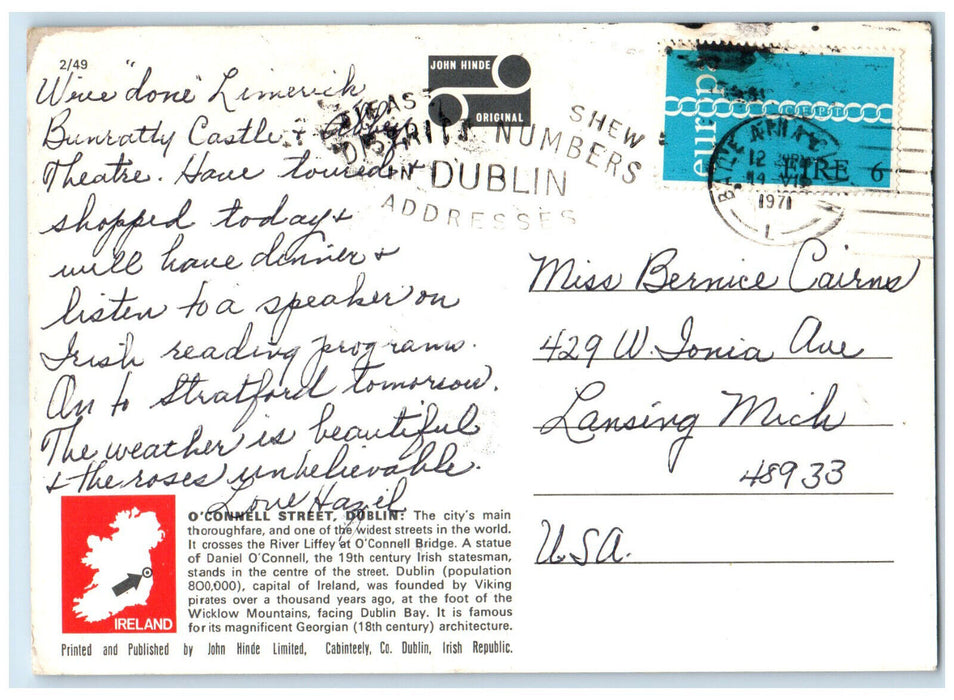 2/49
We've "done" Limerick
Bunratty Castle + Abbey
Theatre. Have toured +
shopped today +
will have dinner +
listen to a speaker on
Irish reading programs.
On to Stratford tomorrow.
The weather is beautiful
+ the roses unbelievable.
Love Hazel
JOHN HINDE
ORIGINAL
SHEW
DISTRICT NUMBERS
IN DUBLIN
ADDRESSES
europa
CEPT
ÉIRE 6
BAILE ÁTHA
12
1971
1
Miss Bernice Cairns
429 W. Ionia Ave
Lansing Mich
48933
USA.
IRELAND
O'CONNELL STREET, DUBLIN: The city's main
thoroughfare, and one of the widest streets in the world.
It crosses the River Liffey at O'Connell Bridge. A statue
of Daniel O'Connell, the 19th century Irish statesman,
stands in the centre of the street. Dublin (population
800,000), capital of Ireland, was founded by Viking
pirates over a thousand years ago, at the foot of the
Wicklow Mountains, facing Dublin Bay. It is famous
for its magnificent Georgian (18th century) architecture.
Printed and Published by John Hinde Limited, Cabinteely, Co. Dublin, Irish Republic.